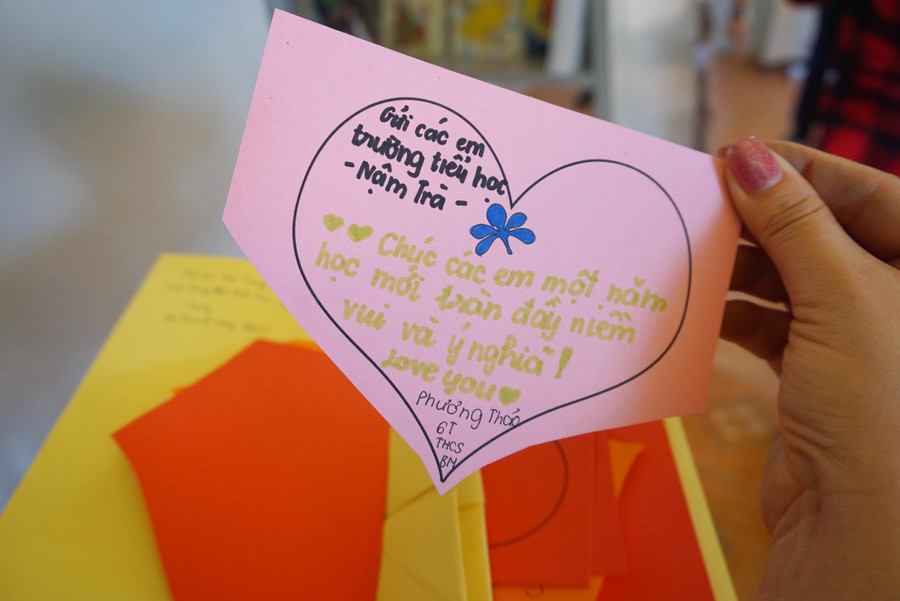 Gửi các em
trường tiểu học
- Nậm Trà -
Chúc các em một năm
học mới tràn đầy niềm
vui và ý nghĩa!
Love you
Phương Thảo
6T
THCS
BM